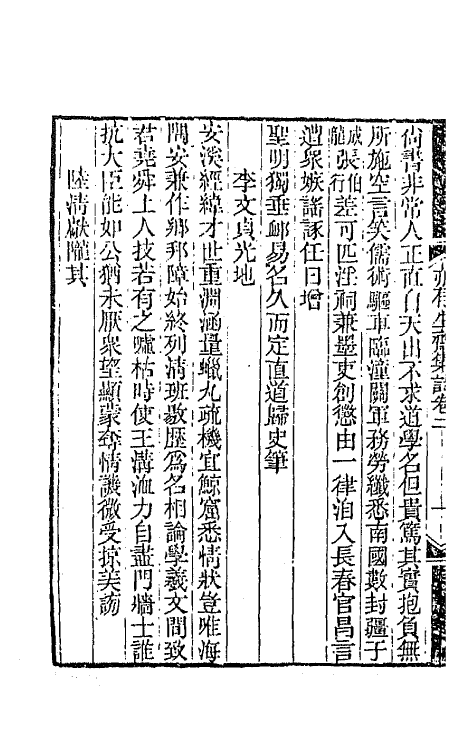 尚書非常人正直自天出不求道學名但貴篤其實抱負無
所施空言笑儒術驅車臨潼關軍務勞纖悉南國數封疆子
成龍張伯行差可匹淫祠兼墨吏創懲由一律洎入長春官昌言
遭眾嫉謠諑任日增
聖明獨垂卹易名久而定直道歸史筆
李文貞光地
安溪經緯才世重淵涵量蠟丸疏機宜鯨窟悉情狀豈唯海
隅安兼作鄉邦障始終列淸班敭歷為名相論學羲文間致
君堯舜上人技若有之噓枯時使王溝洫力自盡門牆士誰
抗大臣能如公猶未厭眾望顯蒙奪情譏微受掠美謗
陸淸獻隴其
亦有生齋集詩卷二